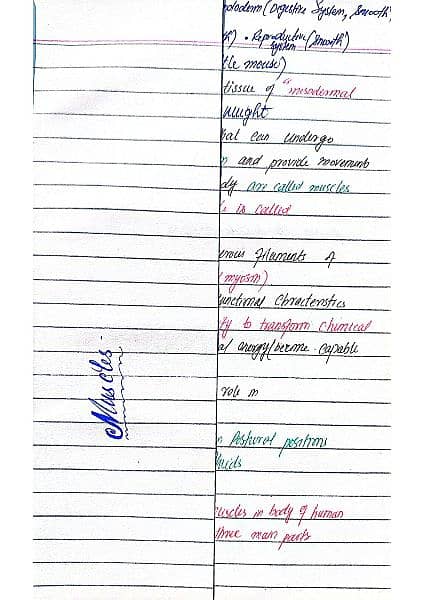 (Digestive System, Smooth,
• Reproductive (Smooth)
System
tle mouse)
tissue of "mesodermal
hal can undergo
n and provide movements
dy are called muscles
is called
filaments of
myosin)
unctional Chracteristics
ty to transform chimical
al energy/become capable
Muscles.
role in
n Postural positions
luids
uscles in body of human
three main parts